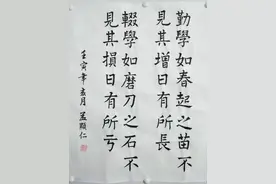 勤學如春起之苗不
見其增日有所長
輟學如磨刀之石不
見其損日有所亏
壬寅年玄月孟顯仁